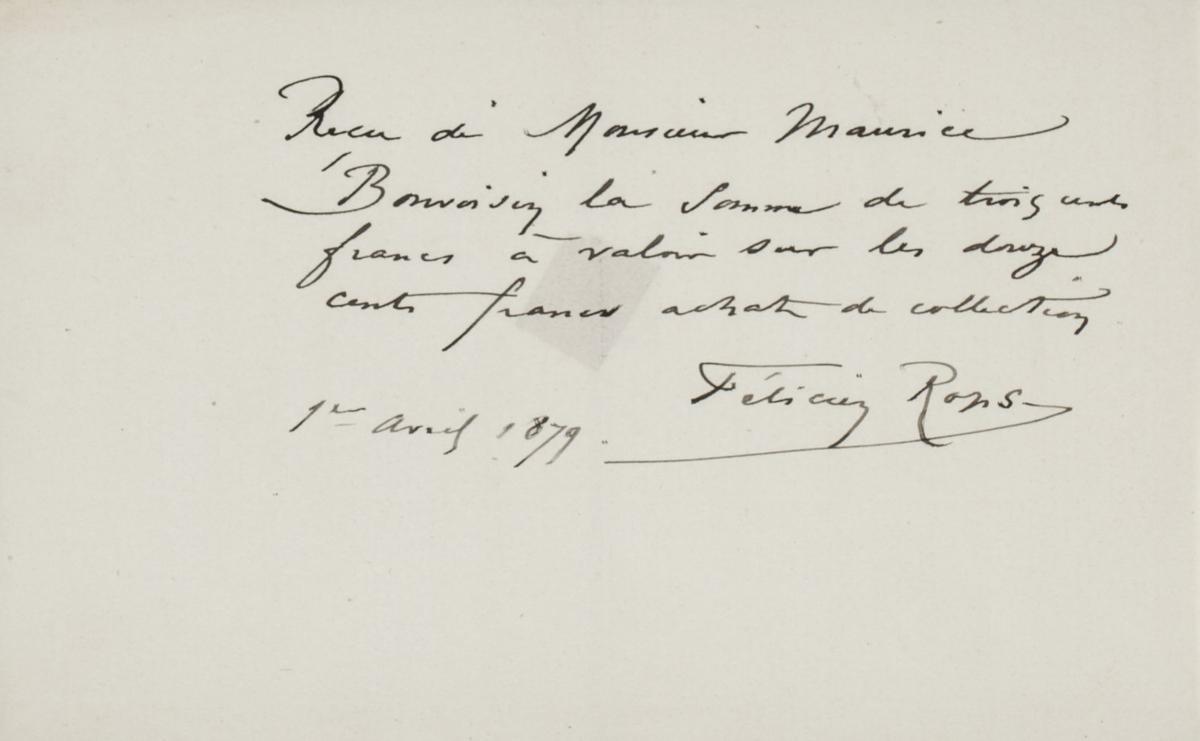 Recu de Monsieur Maurice
Bonvoisin la somme de trois cents
francs à valoir sur les douze
cents francs achat de collection
Félicien Rops
1er Avril 1879.